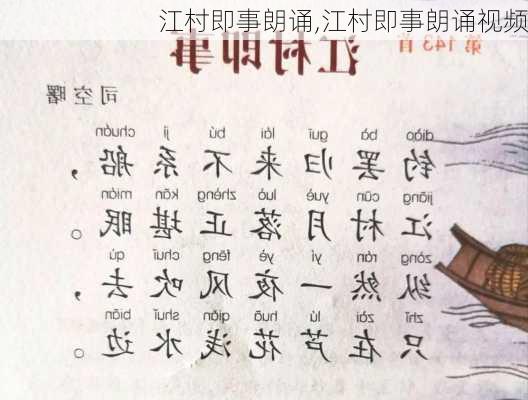 江村即事朗诵,江村即事朗诵视频
第 143 首
江村即事
司空曙
diào bà guī lái bú jì chuán
钓罢归来不系船，
jiāng cūn yuè luò zhèng kān mián
江村月落正堪眠。
zòng rán yí yè fēng chuī qù
纵然一夜风吹去，
zhǐ zài lú huā qiǎn shuǐ biān
只在芦花浅水边。